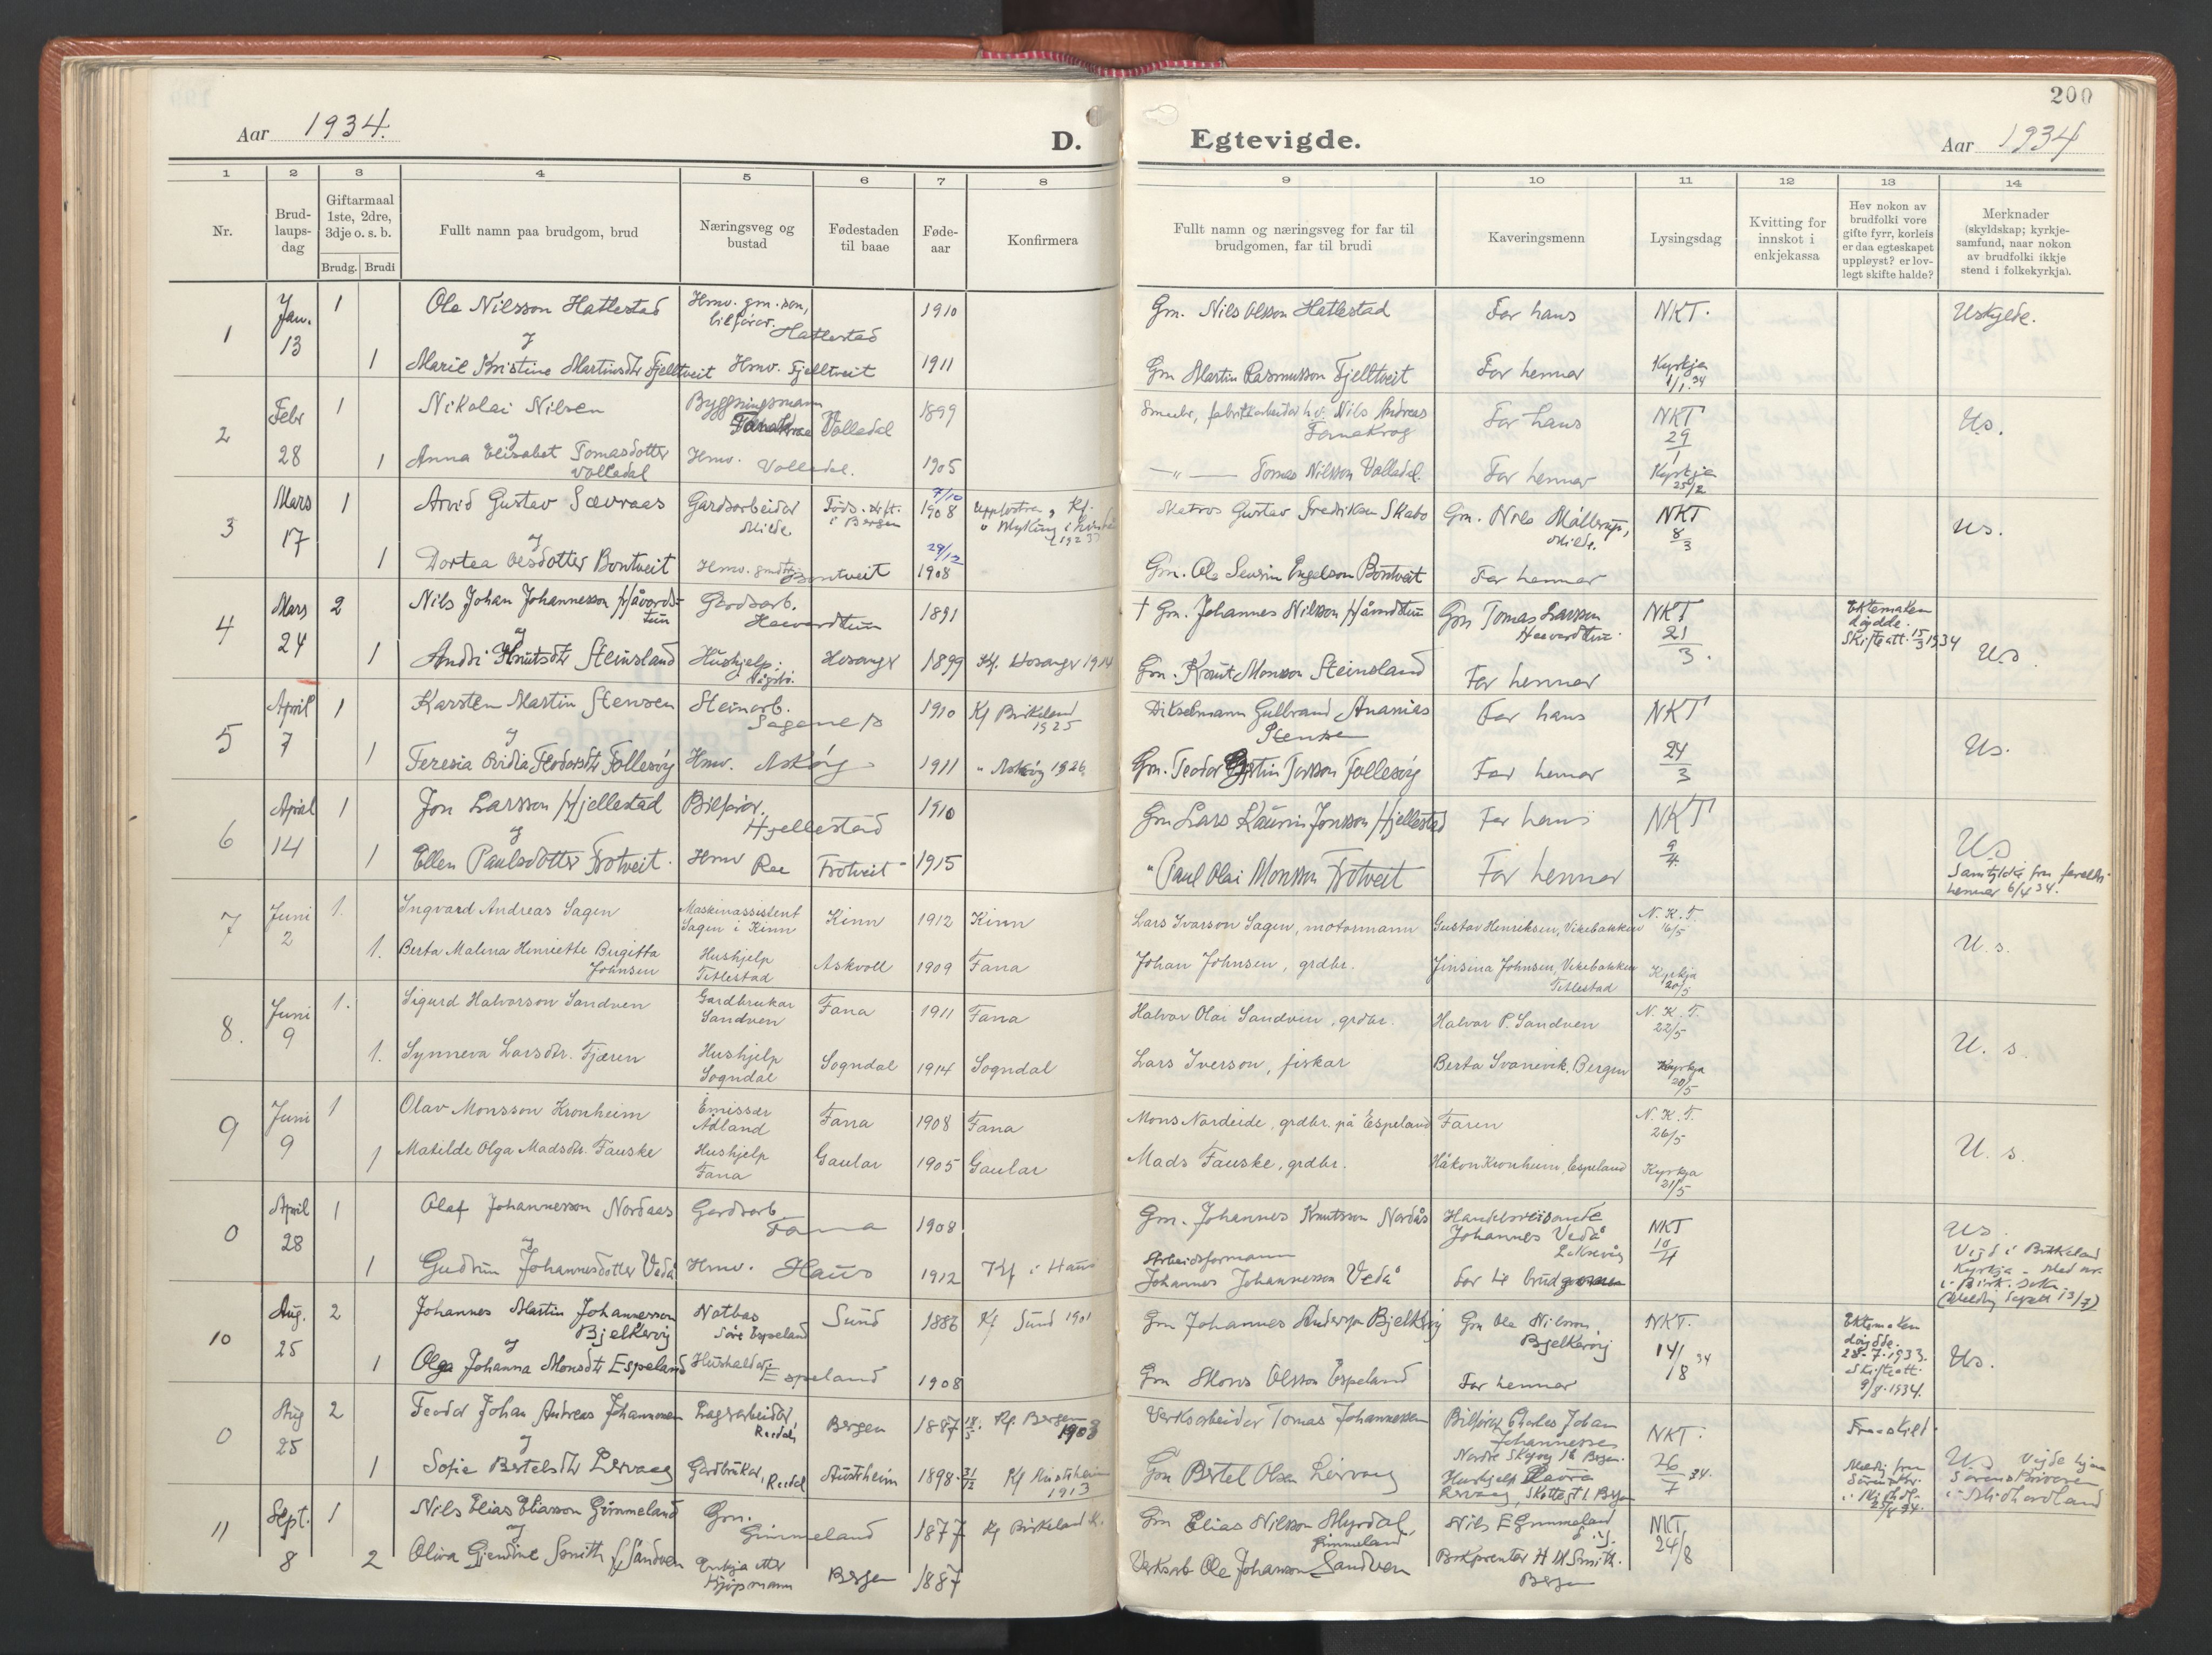 200
Aar 1934.
D.
Egtevigde.
Aar 1934
1 2 3 4 5 6 7 8
9 10 11 12 13 14
Nr.
Brud-
laups-
dag
Giftarmaal
1ste, 2dre,
3dje o. s. b.
Brudg. Brudi
Fullt namn paa brudgom, brud
Næringsveg og
bustad
Fødestaden
til baae
Føde-
aar
Konfirmera
Fullt namn og næringsveg for far til
brudgomen, far til brudi
Kaveringsmenn
Lysingsdag
Kvitting for
innskot i
enkjekassa
Hev nokon av
brudfolki vore
gifte fyrr, korleis
er daa egteskapet
uppløyst? er lov-
legt skifte halde?
Merknader
(skyldskap; kyrkje-
samfund, naar nokon
av brudfolki ikkje
stend i folkekyrkja).
1
Jan.
13
1
Ole Nilsson Hatlestad
Hmv. gm. son,
bilførar.
Hatlestad
1910
Gm. Nils Olsson Hatlestad
Far hans
NKT.
Uskylde.
og
1
Marie Kristine Martinsdtr Fjelltveit
Hmv. Fjelltveit
1911
Gm Martin Rasmusson Fjelltveit
Far hennar
Kyrkja
1/1.34
2
Febr
28
1
Nikolai Nilsen
Byggningsmann
Volledal
1899
Smeubr, fabrikkarbeidar h.v. Nils Andreas
Fanakrog
Far hans
NKT
29
1
Us.
og
1
Anna Elisabet Tomasdotter
Volledal
Hmv. Volledal.
1905
—"— Tomas Nilsson Volledal.
Far hennar
Kyrkja
25/2
3
Mars
17
1
Arvid Gustav Sævraas
Gardsarbeidar
Milde.
Føds. stft.
i Bergen
7/10
1908
Matros Gustav Fredriksen Skabo
Gm. Nils Møllerup,
Milde.
NKT
8
3
Us.
og
1
Dortea Olesdotter Bontveit
Hmv. Bontveit
29/12
1908
Gm. Ole Severin Engelson Bontveit
Far hennar
4
Mars
24
2
Nils Johan Johannesson Håvards-
tun
Gardsarb.
Haavardtun
1891
† Gm. Johannes Nilsson Håvardstun
Gm Tomas Larsson
Haavardtun.
NKT
21
3.
Ektemaken
døydde.
Skifteatt. 15/3 1934
Us.
og
1
Andri Knutsdtr Steinsland
Hushjelp.
Vågsbø.
Hosanger
1899
Kf. Hosanger 1914
Gm. Knut Monsson Steinsland
Far hennar
5
April
7
1
Karsten Martin Stensen
Steinarb.
Sagenes
1910
Kf Birkeland
1925
Dikselmann Gulbrand Ananias
Stensen
Far hans
NKT
24
3
Us.
og
1
Teresia Ovidia Teodorsdtr Follesøy
Hmv. Askøy
1911
" Askøy 1926
Gm. Teodor Torsson Follesøy
Far hennar
6
April
14
1
Jon Larsson Hjellestad
Bilførar.
Hjellestad
1910
Gm Lars Kaurin Jonsson Hjellestad
Far hans
NKT
9
4.
Us
Samtykke fra foreldr.
hennar 6/4 34.
og
1
Ellen Paulsdotter Trotveit.
Hmv Rae
Trotveit
1915
" Paul Olai Monsson Trotveit
Far hennar
7
Juni
2
1.
Ingvard Andreas Sagen
Maskinassistent
Sagen i Kinn
Kinn
1912
Kinn
Lars Ivarson Sagen, motormann
Gustav Henriksen, Vikebakken
N. K. T.
16/5
U. s.
1.
Berta Malena Henriette Birgitta
Johnsen
Hushjelp
Titlestad
Askvoll
1909
Fana
Johan Johnsen, grdbr.
Jinsina Johnsen, Vikebakken
Titlestad
Kyrkja
20/5
8.
Juni
9
1.
Sigurd Halvorson Sandven
Gardbrukar
Sandven
Fana
1911
Fana
Halvor Olai Sandven, grdbr.
Halvor P. Sandven
N. K. T.
22/5
U. s.
1.
Synneva Larsdtr. Fjæren
Hushjelp
Sogndal
Sogndal
1914
Sogndal
Lars Iverson, fiskar
Berta Svanevik, Bergen
Kyrkja
20/5
9
Juni
9
1
Olav Monsson Kronheim
Emissær
Ådland
Fana
1908
Fana
Mons Nordeide, grdbr. på Espeland
Faren
N. K. T.
26/5
U. s.
1
Matilde Olga Madsdtr. Fauske
Hushjelp
Fana
Gaular
1905
Gaular
Mads Fauske, grdbr.
Håkon Kronheim, Espeland
Kyrkja
21/5
0
April
28
1
Olaf Johannesson Nordaas
Gardsarb
Fana
1908
Gm. Johannes Knutsson Nordås
Handelsreisande
Johannes Vedå
NKT
10
4
Us.
Vigd i Birkeland
Kyrkja
og
1
Gudrun Johannesdotter Vedå
Hmv. Haus
1912
Kf i Haus
Arbeidsformann
Johannes Johannesson Vedå
Far til brud
10
Aug.
25
2
Johannes Martin Johannesson
Bjelkerøy
Notbas
Søre Espeland
Sund
1886
Kf Sund 1901
Gm Johannes Anderson Bjelkerøy
Gm Ole Nilsson
Bjelkerøy
NKT.
14/8 34
Ektemaken
døydde.
28-7-1933.
Skifteatt.
9/8-1934.
Us.
og
1
Olga Johanna Monsdtr Espeland
Hushaldar
Espeland
1908
Gm Mons Olsson Espeland
Far hennar
0
Aug
25
2
Teodor Johan Andreas Johannessen
Lagerarbeidar,
Reedal
Bergen
1887
Kf. Bergen
1903
Verksarbeidar Tomas Johannessen
Bilførar Charles Johan
Johannesses
NKT.
26
7 34.
Fraskild
og
1
Sofie Bertelsdtr Lervaag
Gardbrukar, Reedal
Austrheim
1898. 31/12
Kf Austrheim
1913
Gm Bertel Olsen Lervaag
Us. Vigde hjaa
Sorenskrivaren
i Midhordland
11
Sept.
8
1
Nils Elias Eliasson Grimmeland
Gm.
Grimmeland
1877
Kf Birkeland K.
Gm Elias Nilsson Myrdal,
Grimmeland
Nils E Grimmeland
NKT
24/8
og
2
Oliva Gjendine Smith f. Sandven
Enkja etter
kjøpmann
Bergen
1887
Verksarb Ole Johanson Sandven
Bokprentar H M Smith.
Bergen